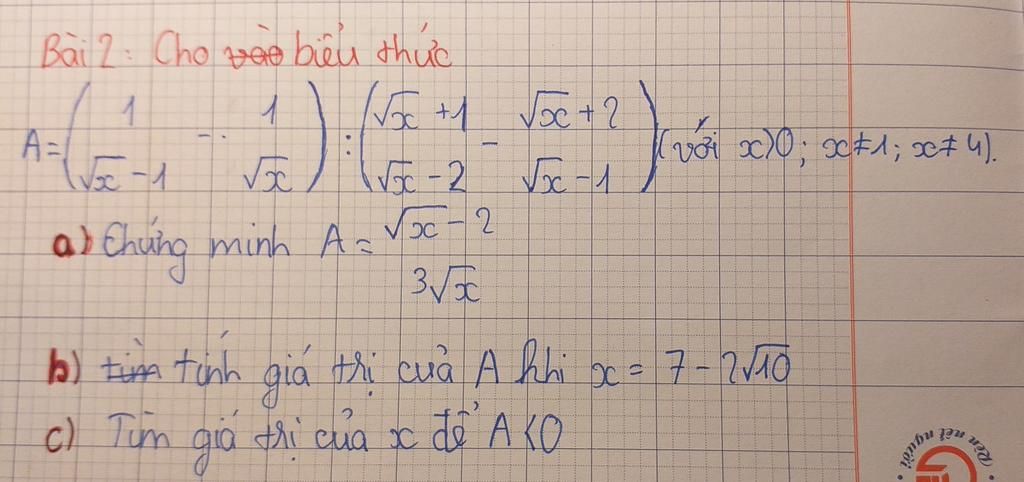 Bài 2: Cho vào biểu thức
A = (1/(√x - 1) - 1/√x) : ((√x + 1)/(√x - 2) - (√x + 2)/(√x - 1)) (với x>0; x≠1; x≠4).
a) Chứng minh A = (√x - 2)/(3√x)
b) tìm tính giá trị của A khi x = 7 - 2√10
c) Tìm giá trị của x để A<0
Rèn nết người